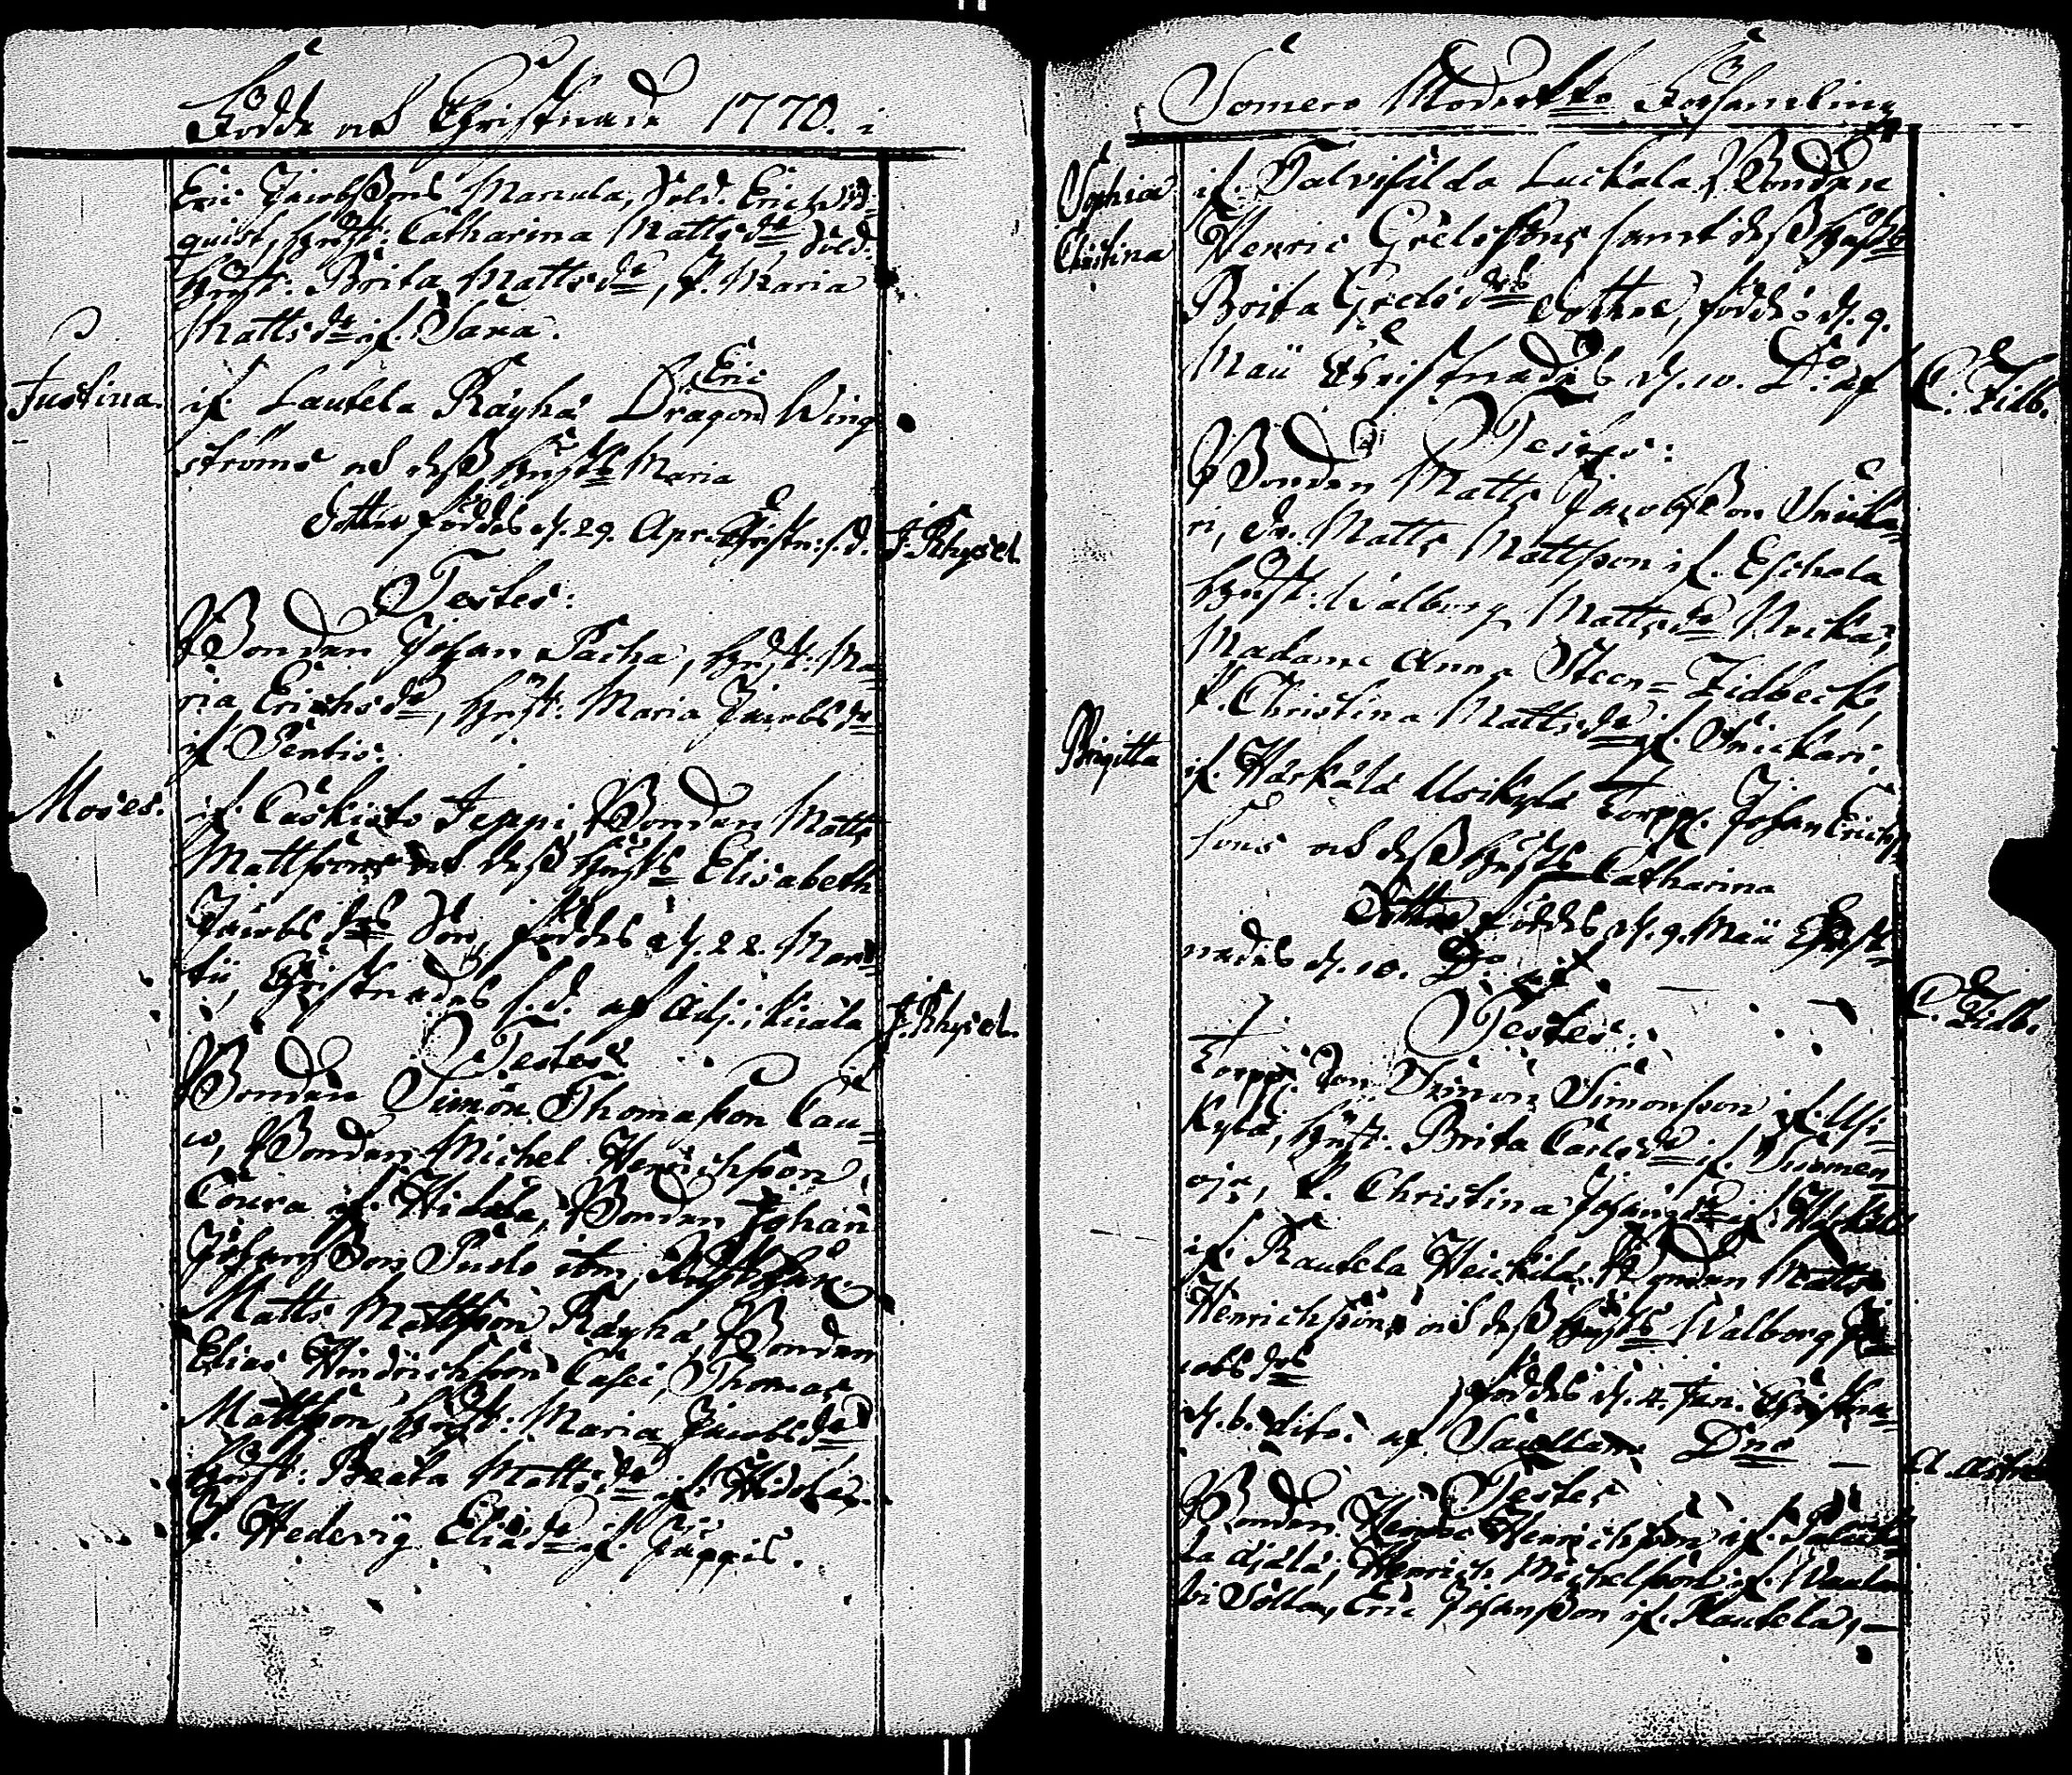 Födde och Christnade 1770. i
Eric Jacobssons Manula, Sold. Erich Wid-
quist, hust: Catharina Matts dr Sold.
hust: Brita Matts dr, P. Maria
Matts dr if. Sara.
Justina. if. Lautela Räyhä Dragon Eric Wing
ströms och dess hust Maria
dotter föddes d. 29. Apr. Christn: s.d. J. Rhyzel.
Testes:
Bonden Johan Pacha, hust: Ma-
ria Erichs dr, hust: Maria Jacobs dr
if Pentis:
Moses. if. Caskisto Jeppi Bonden Matts
Mattssons och dess hust Elisabeth
Jacobs drs Son, föddes d. 22. Mar-
tii, Christnades s.d. af Adj: i kiäla J. Rhyzel.
Testes
Bonden Simon Thomasson Cau-
w, Bonden Michel Henrichsson
Coura if. Hidala, Bonden Johan
Johansson Pusls itm,
Matts Mattsson Räyhä, Bonden
Elias Hindrichsson Casei, Thomas
Mattsson, hust: Maria Jacobs dr
hust: Beata Matts dr if.
P. Hedevig Elias dr if. Jäppis.
Somero Moderkko Församling
Sophia if. Talvisilda Luckala, Bonden
Christina Henric Grelssons samt dess hust
Brita Grels drs dotter, föddes d. 9.
Maii Christnades d. 10. Do af C. Zidb.
Testes:
Bonden Matts Jacobsson Snicka-
ri, dr. Matts Mattsson if. Eschola
hust: Walborg Matts dr Nocka,
Madame Anna Steen-Zidbeck,
P. Christina Matts dr if. Snickari.
Brigitta if. Härkälä Usikylä Torpp. Johan Erichs
sons och dess hust Catharina
dotter föddes d. 9. Maii Christ-
nades d. 10. Do C. Zidb.
Testes:
Torpp. Son Simon Simonsson if. Usi-
kylä, hust: Brita Carls dr if. Suomen
oja, P. Christina Johans dr if. Härkälä
if. Rautela Heickilä Bonden Matts
Henrichssons och dess hust Walborg Ja-
cobs drs föddes d. 4. Jun. Christna-
d. 6. dito. af Dno
Testes
Bonden Henrichsson if.
la Ojala, Henrich Michelsson if.
Eric Johansson if. Rautela,